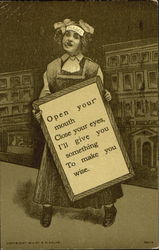 Open your
mouth
Close your eyes,
I'll give you
something
To make you
wise.